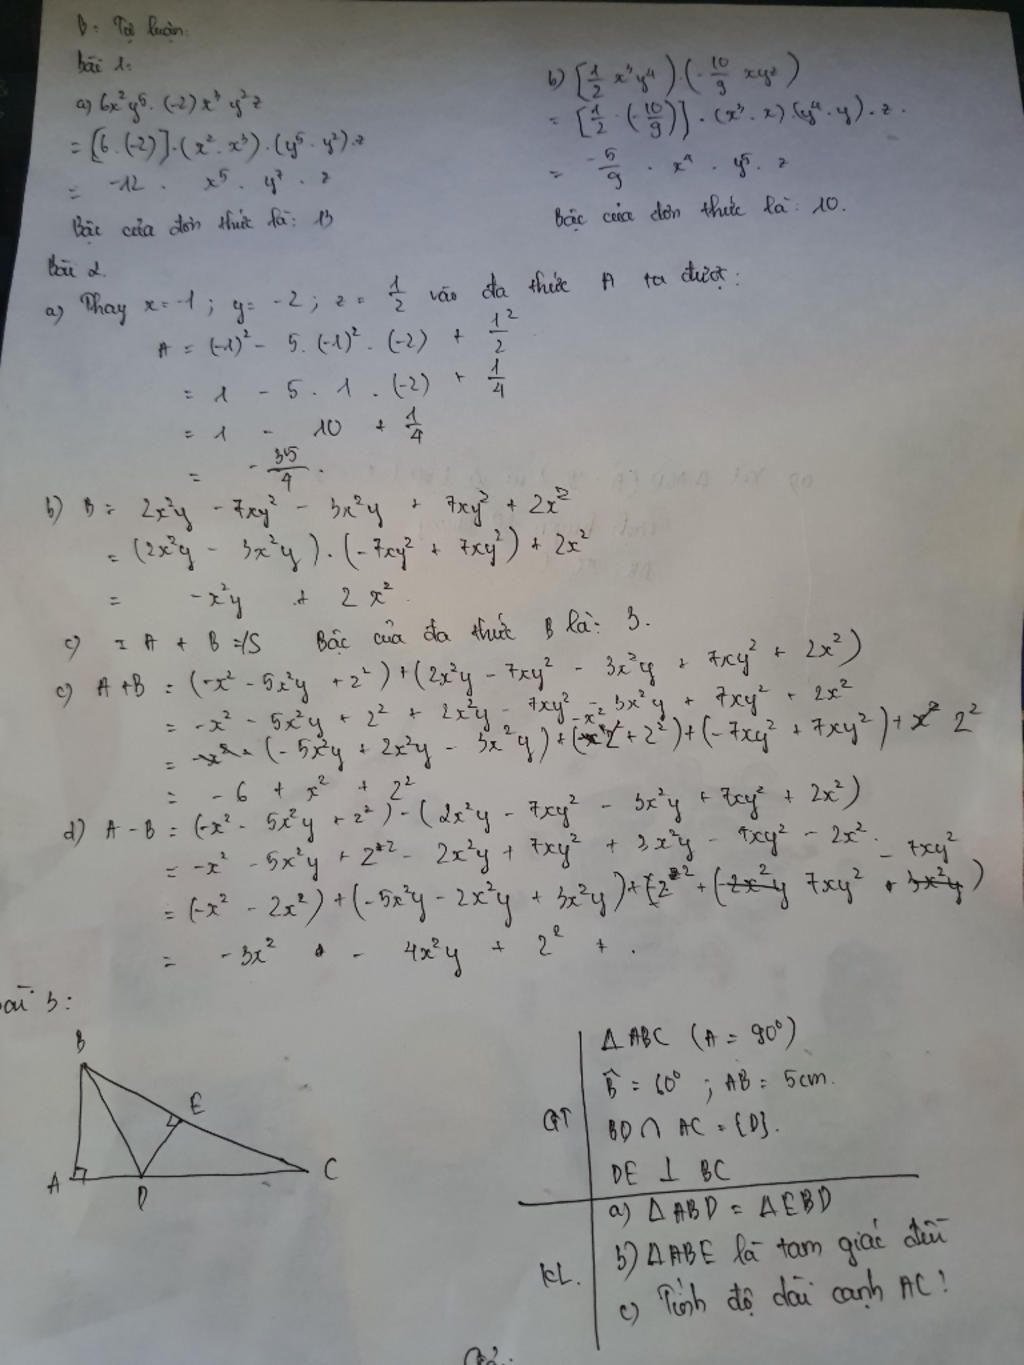 B. Tự luận:
Bài 1:
a) 6x²y⁵. (-2)x³y²z
= [6.(-2)].(x². x³).(y⁵. y²).z
= -12 . x⁵ . y⁷ . z
Bậc của đơn thức là: 13
b) [1/2 x³y⁴).(-10/9 xyz)
= [1/2 . (-10/9)] . (x³. x).(y⁴. y). z.
= -5/9 . x⁴ . y⁵. z
Bậc của đơn thức là: 10.
Bài 2.
a) Thay x = -1 ; y = -2 ; z = 1/2 vào đa thức A ta được:
A = (-1)² - 5.(-1)². (-2) + 1²/2
= 1 - 5 . 1 . (-2) + 1/4
= 1 - 10 + 1/4
= -35/4.
b) B = 2x²y - 7xy² - 3x²y + 7xy² + 2x²
= (2x²y - 3x²y).(-7xy² + 7xy²) + 2x²
= -x²y + 2x²
c) = A + B = Bậc của đa thức B là: 3.
c) A+B = (-x² - 5x²y + z²) + (2x²y - 7xy² - 3x²y + 7xy² + 2x²)
= -x² - 5x²y + z² + 2x²y - 7xy² - 3x²y + 7xy² + 2x²
= (-5x²y + 2x²y - 3x²y) + (-x² + 2²) + (-7xy² + 7xy²) + 2²
= -6 + x² + 2²
d) A - B = (-x² - 5x²y + z²) - (2x²y - 7xy² - 3x²y + 7xy² + 2x²)
= -x² - 5x²y + z² - 2x²y + 7xy² + 3x²y - 7xy² - 2x²
= (-x² - 2x²) + (-5x²y - 2x²y + 3x²y) + [z² + (7xy² - 7xy²)
= -3x² - 4x²y + z² + .
Bài 3:
B
E
A
D
C
GT
ΔABC (A = 90°)
B̂ = 60° ; AB = 5cm.
BD ∩ AC = {D}.
DE ⊥ BC
KL.
a) ΔABD = ΔEBD
b) ΔABE là tam giác đều
c) Tính độ dài cạnh AC!